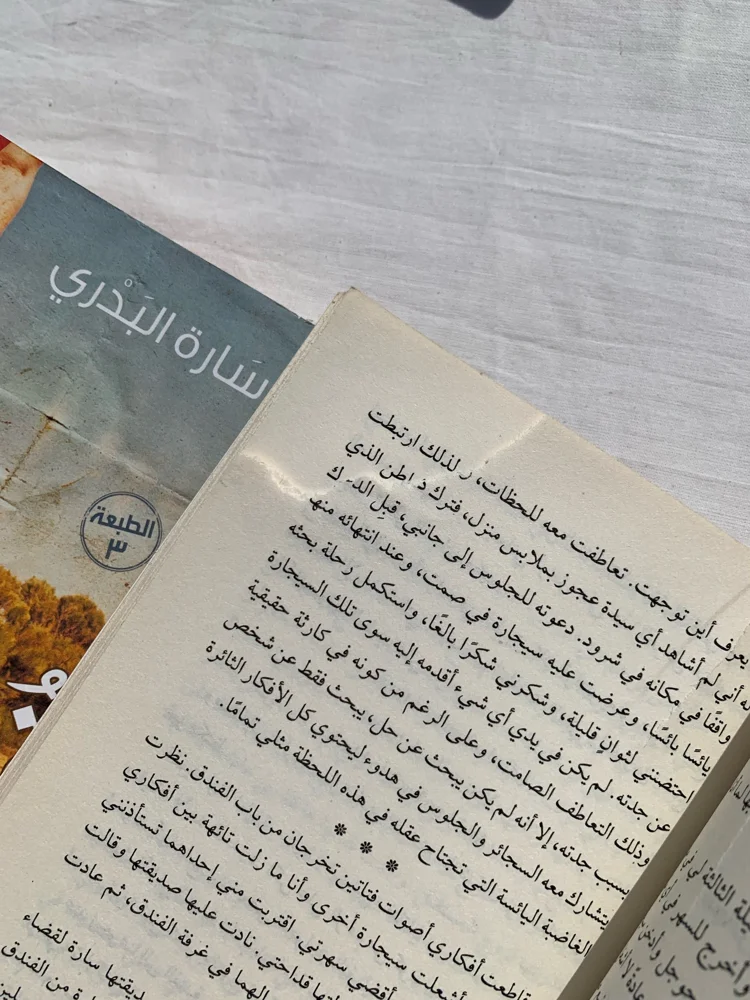 سَارة البَدْري
الطبعة
٣
يعرف أين توجهت. تعاطفت معه للحظات، ولذلك ارتبطت
له أني لم أشاهد أي سيدة عجوز بملابس منزل، فترك الذي
واقفًا في مكانه في شرود. دعوته للجلوس إلى جانبي، قبل
يائسًا بائسًا، وعرضت عليه سيجارة في صمت، وعند انتهائه منها
احتضنني لثوانٍ قليلة، وشكرني شكرًا بالغًا، واستكمل رحلة بحثه
عن جدته. لم يكن في يدي أي شيء أقدمه إليه سوى تلك السيجارة
وذلك التعاطف الصامت، وعلى الرغم من كونه في كارثة حقيقية
بسبب جدته، إلا أنه لم يكن يبحث عن حل، يبحث فقط عن شخص
يتشارك معه السجائر والجلوس في هدوء ليحتوي كل الأفكار الثائرة
الغاضبة اليائسة التي تجتاح عقله في هذه اللحظة مثلي تمامًا.
* * *
قاطعت أفكاري أصوات فتاتين تخرجان من باب الفندق. نظرت
أشعلت سيجارة أخرى وأنا ما زلت تائهة بين أفكاري
أقضي سهرتي. اقتربت مني إحداهما تستأذنني
قداحتي. نادت عليها صديقتها وقالت
الهما في غرفة الفندق، ثم عادت
صديقتها سارة لقضاء
من الفندق
ليلة الثالثة لي في
وأخرج للسهر في
جوجل وأدخن